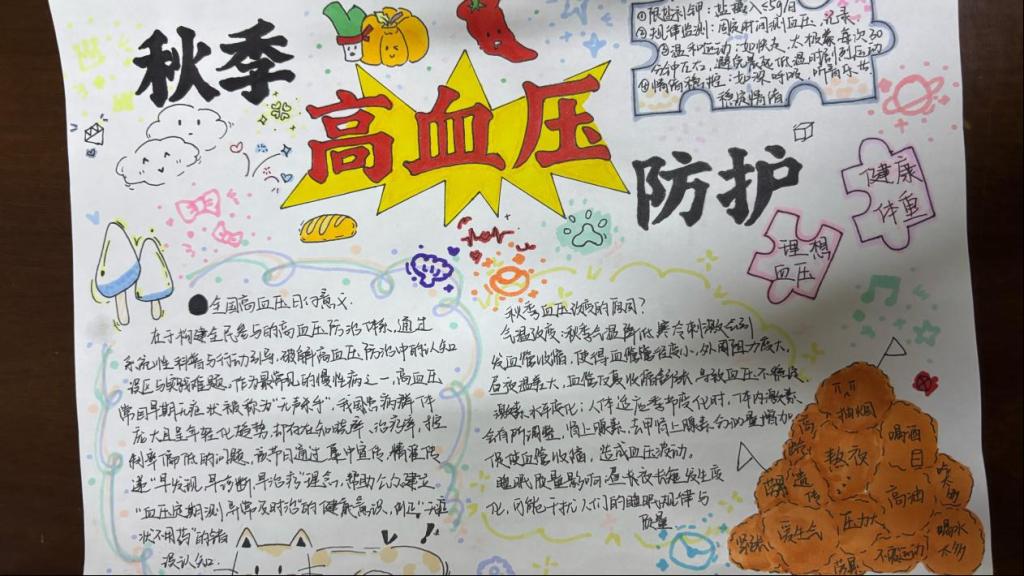 秋季
高血压
防护
①限盐补钾：盐摄入≤5g/日
②规律监测：固定时间测血压，记录
③温和运动：如快走、太极拳每次30
分钟左右，避免晨起低温时剧烈运动
④情绪管控：深呼吸、听音乐
稳定情绪
健康
体重
理想
血压
全国高血压日的意义
在于构建全民参与的高血压防治体系，通过
系统性科普与行动引导，破解高血压防治中的认知
误区与实践难题。作为最常见的慢性病之一，高血压
常因早期无症状被称为“无声杀手”，我国患病群体
庞大且呈年轻化趋势，却存在知晓率、治疗率、控
制率偏低的问题，该节日通过集中宣传，精准传
递“早发现、早诊断、早治疗”理念，帮助公众建立
“血压定期测，异常及时治”的健康意识，纠正“无症
状不用药”的错
误认知.
秋季血压改变的原因？
气温改变：秋季气温降低，寒冷刺激会引
发血管收缩，使得血管管径变小，外周阻力变大，
昼夜温差大，血管反复收缩舒张，导致血压不稳定，
激素水平变化：人体适应季节变化时，体内激素
会有所调整，肾上腺素、去甲肾上腺素分泌量增加
促使血管收缩，造成血压波动。
睡眠质量影响：昼长夜长短发生变
化，可能干扰人们的睡眠规律与
质量
抽烟
熬夜
喝酒
遗传
高油
压力大
不爱运动
喝水
太少